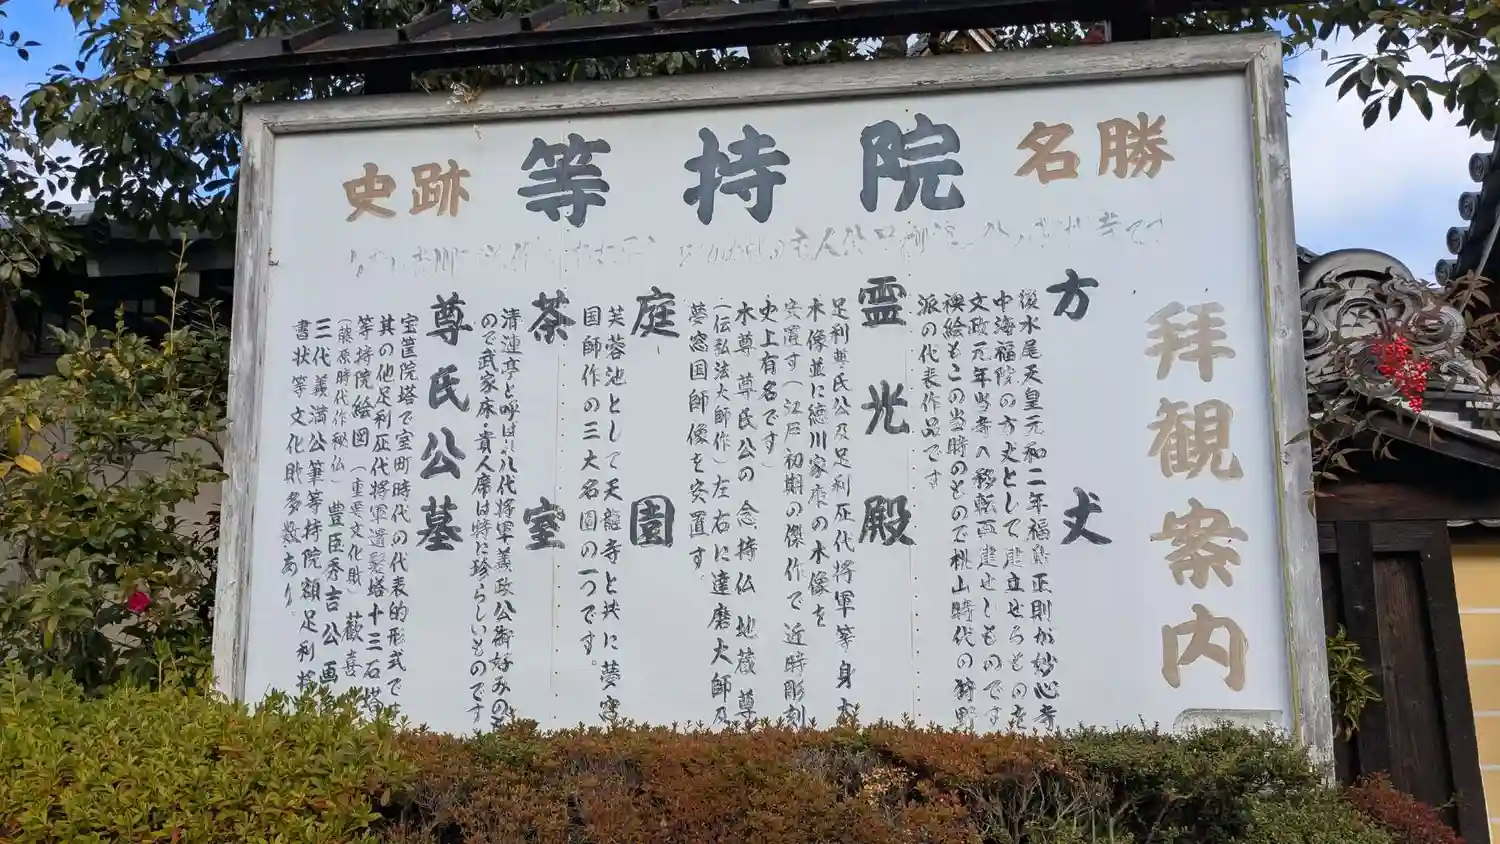 史跡 等持院 名勝
拝観案内
方丈
後水尾天皇元和二年福島正則が妙心寺
中海福院の方丈として建立せらもの
文政元年当寺へ移転再建せしものです
襖絵もこの当時のもので桃山時代の狩野
派の代表作品です
霊光殿
足利尊氏公及足利歴代将軍等身大
木像並に徳川家康の木像を
安置す(江戸初期の傑作で近時彫刻
史上有名です)
本尊 尊氏公の念持仏 地蔵尊
(伝弘法大師作)左右に達磨大師及
夢窓国師像を安置す。
庭園
芙蓉池として天龍寺と共に夢窓
国師作の三大名園の一つです。
茶室
清漣亭と呼ばれ八代将軍義政公御好みの
ので武家床・貴人席は特に珍らしいものです
尊氏公墓
宝筐院塔で室町時代の代表的形式で
其の他足利歴代将軍遺髪塔十三石塔
等持院絵図(重要文化財)歓喜
(藤原時代作秘仏)豊臣秀吉公画
三代義満公筆等持院額足利将
書状等文化財多数あり。